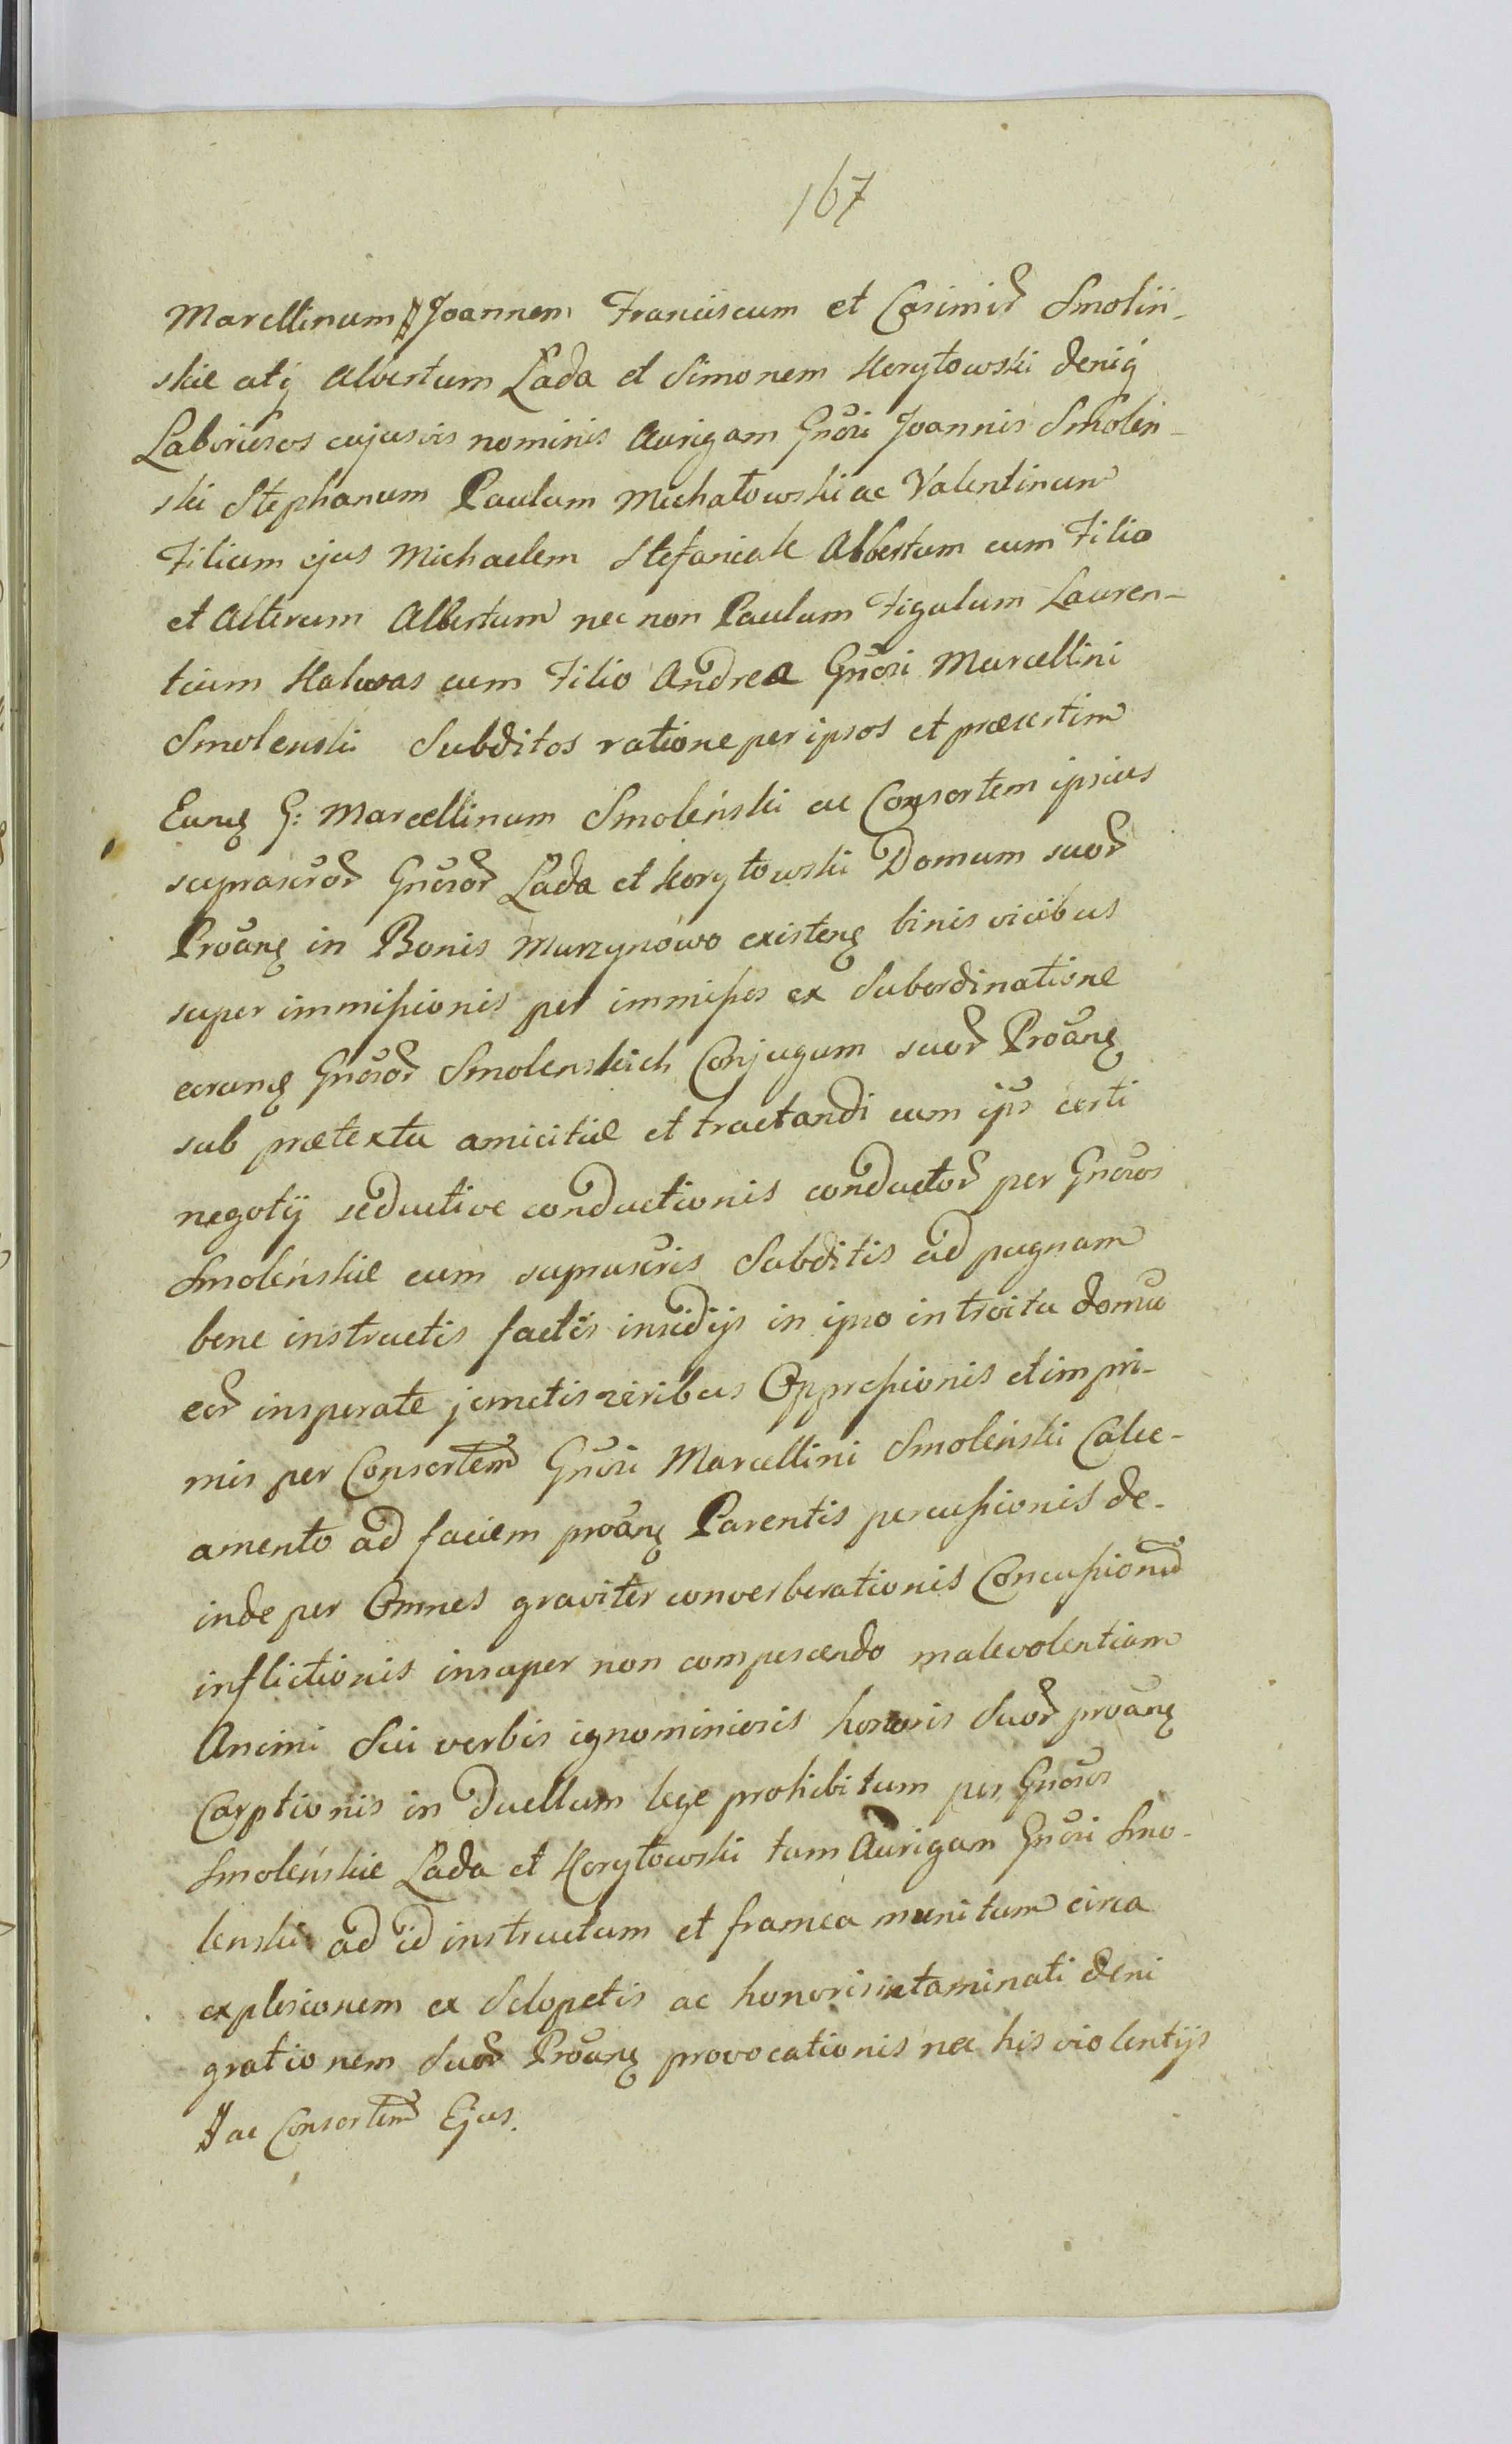 167
Marcellinum # Joannem Franciscum et Casimir Smolin-
skie atq Albertum Łada et Simonem Korytowski deniq
Laboriosos cujusvis nominis Aurigam Gnosi Joannis Smolen-
ski Stephanum Paulum Michałowski ac Valentinum
Filium ejus Michaelem Stefaniak Albertum cum Filio
et Alterum Albertum nec non Paulum Figulum Lauren-
tium Halusas cum Filio Andrea Gnosi Marcellini
Smolenski Subditos ratione per ipsos et præsertim
Eunq G: Marcellinum Smoleński ac Consortem ipsius
suprascror Gnosor Łada et Korytowski Domum suor
Proanq in Bonis Murzynowo existenq binis vicibus
super immissionis per immissos ex Subordinatione
eorumq Gnosor Smolenskich Conjugum suor Proanq
sub prætextu amicitiæ et tractandi cum ijs certi
negotij seductive conductionis conductor per Gnosos
Smoleńskie cum suprascris Subditis ad pugnam
bene instructis factis insidijs in ipso introitu domus
eor insperate junctis viribus Oppressionis et impri-
mis per Consortem Gnosi Marcellini Smoleński Calce-
amento ad faciem proanq Parentis percussionis de-
inde per Omnes graviter converberationis Concussionu
inflictionis insuper non compescendo malevolentiam
Animi Sui verbis ignominiosis honoris Suor proanq
Carptionis in Duellum lege prohibitum per Gnosos
Smoleńskie Łada et Korytowski tum Aurigam Gnosi Smo-
lenski ad id instructum et framea munitum circa
explosionem ex Sclopetis ac honoris intaminati deni
grationem Suor Proanq provocationis nec his violentijs
# ac Consortem Ejus.